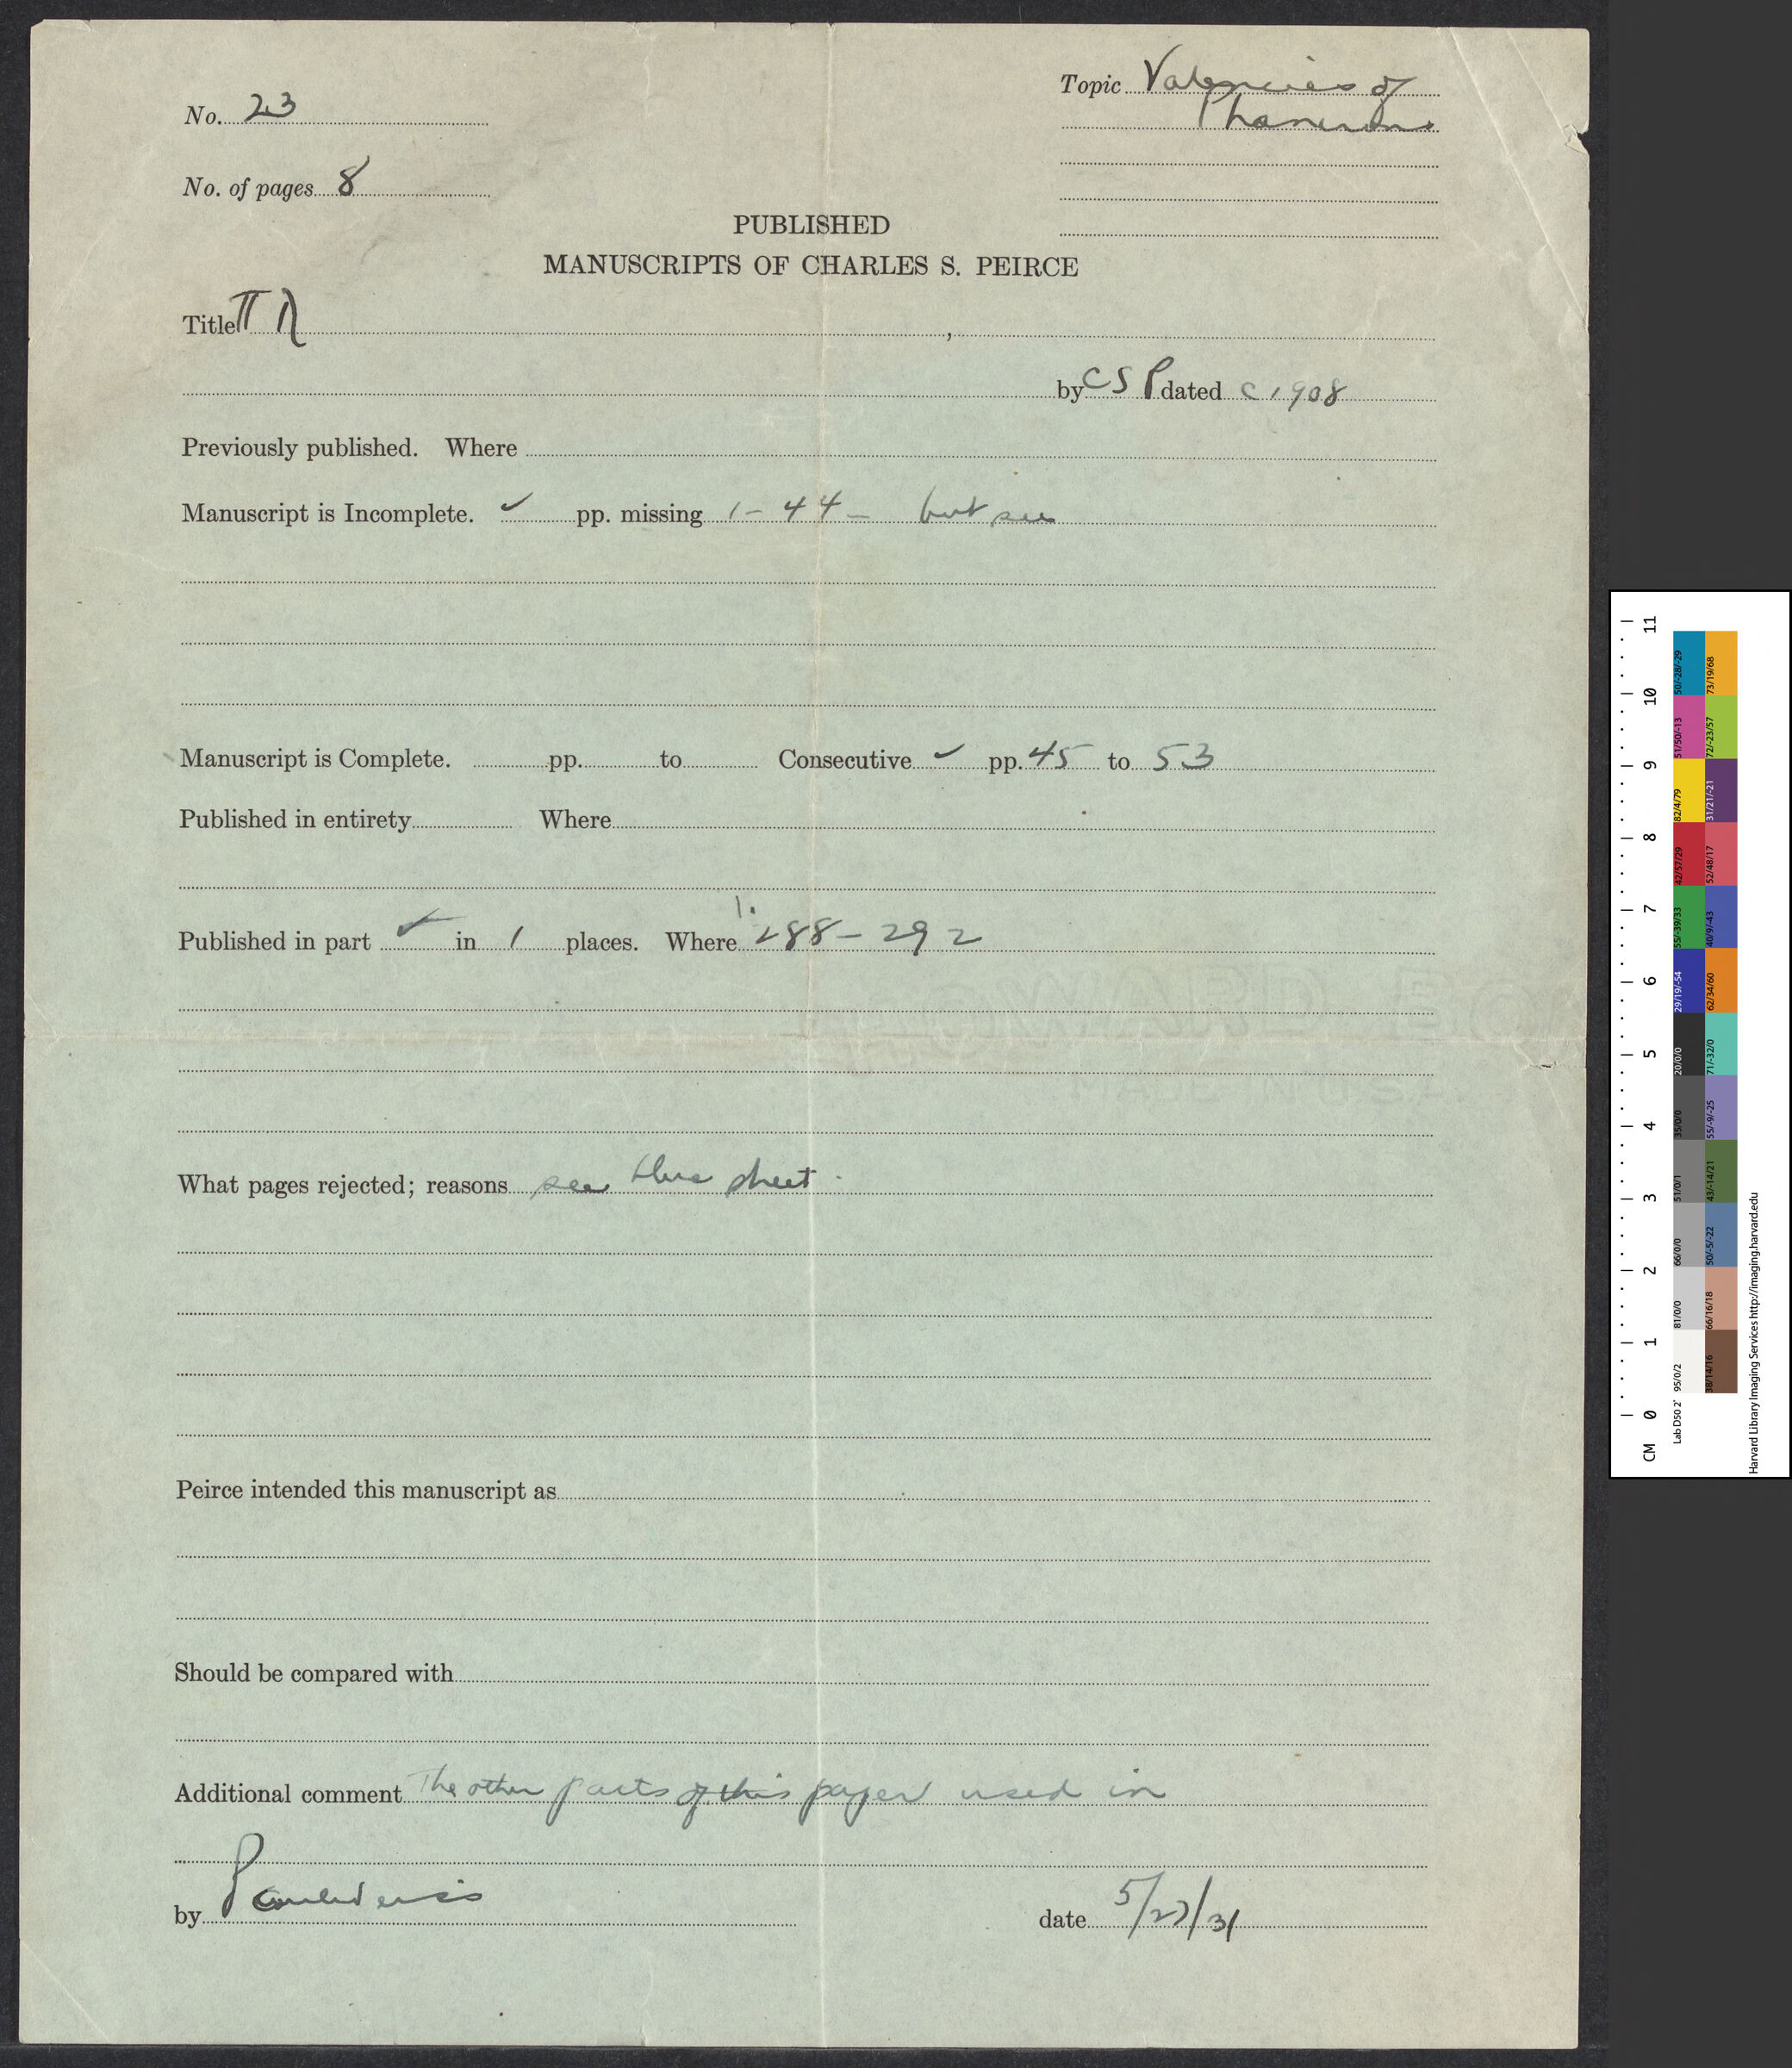 Topic Valencies of
Phanerons
No. 23
No. of pages 8
PUBLISHED
MANUSCRIPTS OF CHARLES S. PEIRCE
Title Π λ ,
by CSP dated c 1908
Previously published. Where
Manuscript is Incomplete. ✓ pp. missing 1 - 44 - but see
Manuscript is Complete. pp. to Consecutive ✓ pp. 45 to 53
Published in entirety Where
Published in part ✓ in 1 places. Where 1.288 - 292
MADE IN U.S.A.
What pages rejected; reasons see blue sheet.
Peirce intended this manuscript as
Should be compared with
Additional comment The other parts of this paper used in
by Paul Weiss
date 5/27/31
CM 0 1 2 3 4 5 6 7 8 9 10 11
Lab D50 2° 95/0/2 81/0/0 66/0/0 51/0/1 35/0/0 20/0/0 29/19/-54 55/-39/33 42/57/29 82/4/79 51/50/-13 50/-28/-29
38/14/16 66/16/18 50/-5/-22 43/-14/21 55/-9/-25 71/-32/0 62/34/60 40/9/-43 52/48/17 31/21/-21 72/-23/57 73/19/68
Harvard Library Imaging Services http://imaging.harvard.edu